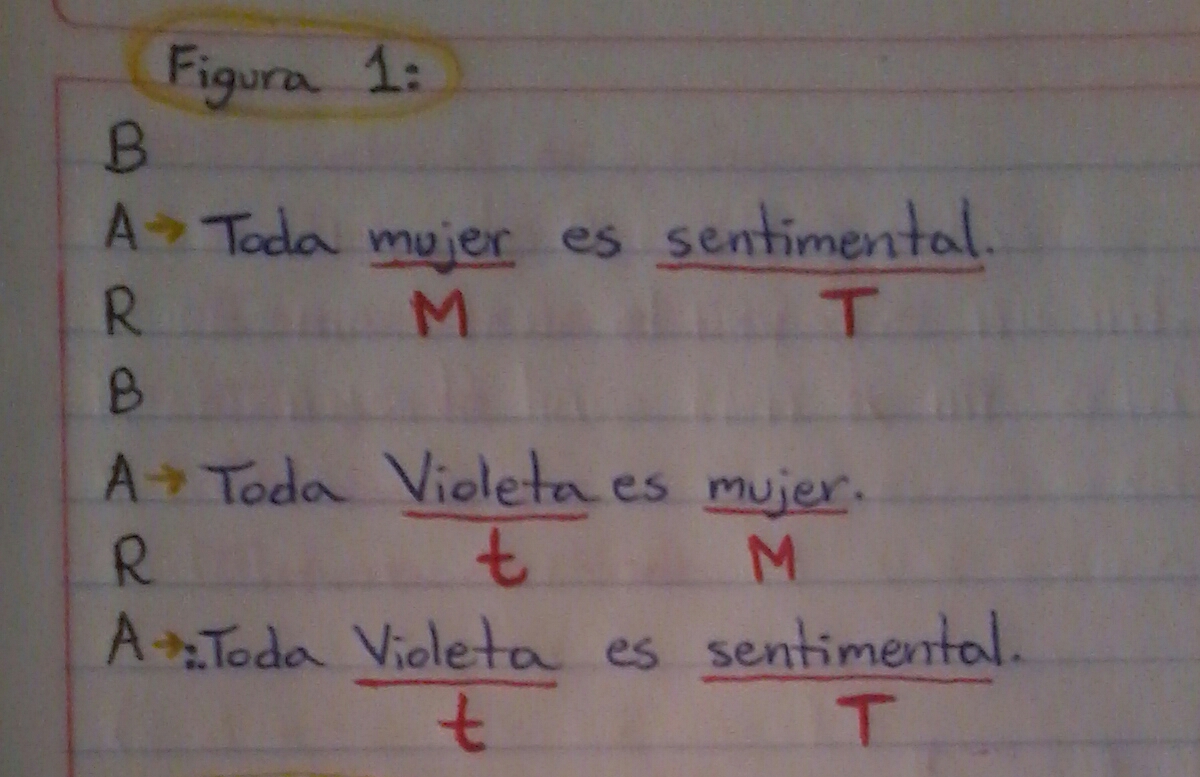 Figura 1:
B
A → Toda mujer es sentimental.
R M T
B
A → Toda Violeta es mujer.
R t M
A → ∴ Toda Violeta es sentimental.
t T